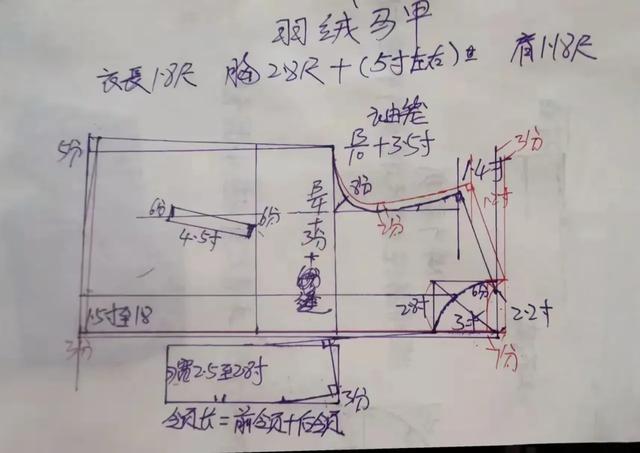 羽绒马甲
衣長1.8尺 胸2.8尺+(5寸左右) 肩1.18尺
袖笼
B/10+3.5寸
3分
5分
1.4寸
1.2寸
3分
2分
B/4+3分+
6分
6分
4.5寸
2.8寸
6分
3寸
2.2寸
1.5寸至18
3分
1分
宽2.5至2.8寸
3分
领长=前领+后领